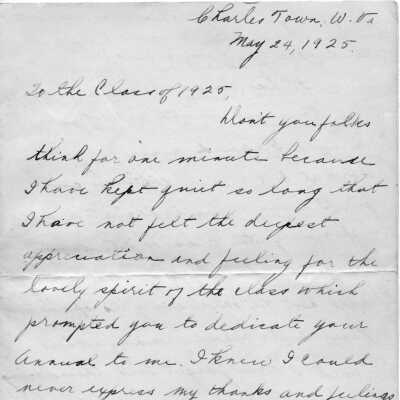 Charles Town, W. Va
May 24, 1925.
To the Class of 1925,
Dont you folks
think for one minute because
I have kept quiet so long that
I have not felt the deepest
appreciation and feeling for the
lovely spirit of the class which
prompted you to dedicate your
Annual to me. I knew I could
never express my thanks and feelings